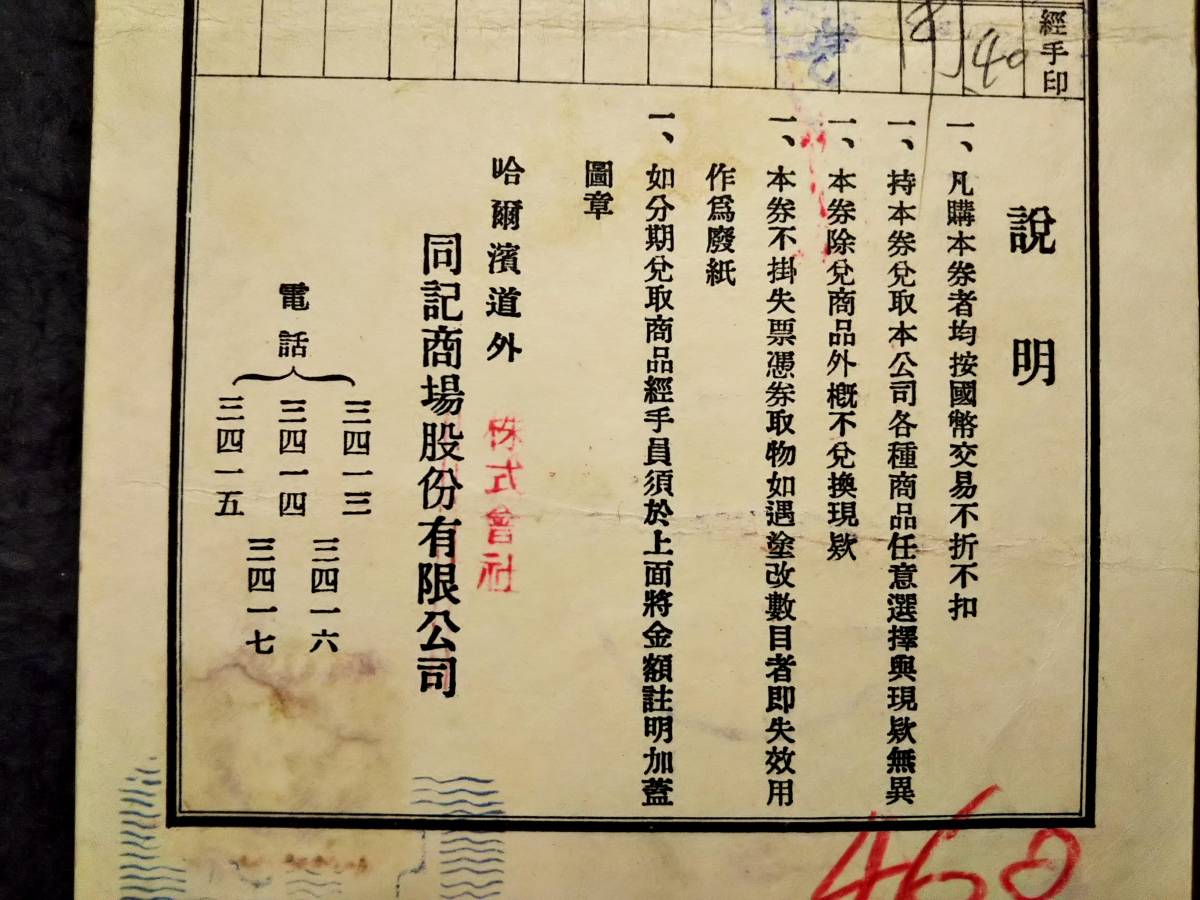 經手印
40
說明
一、凡購本券者均按國幣交易不折不扣
一、持本券兌取本公司各種商品任意選擇與現欵無異
一、本券除兌商品外概不兌換現欵
一、本券不掛失票憑券取物如遇塗改數目者即失效用
作爲廢紙
一、如分期兌取商品經手員須於上面將金額註明加蓋
圖章
哈爾濱道外
株式會社
同記商場股份有限公司
電話
三四一三
三四一四
三四一五
三四一六
三四一七
460